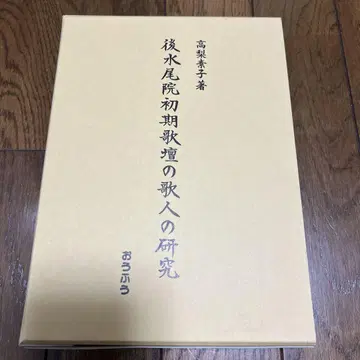 高梨素子著
後水尾院初期歌壇の歌人の研究
おうふう